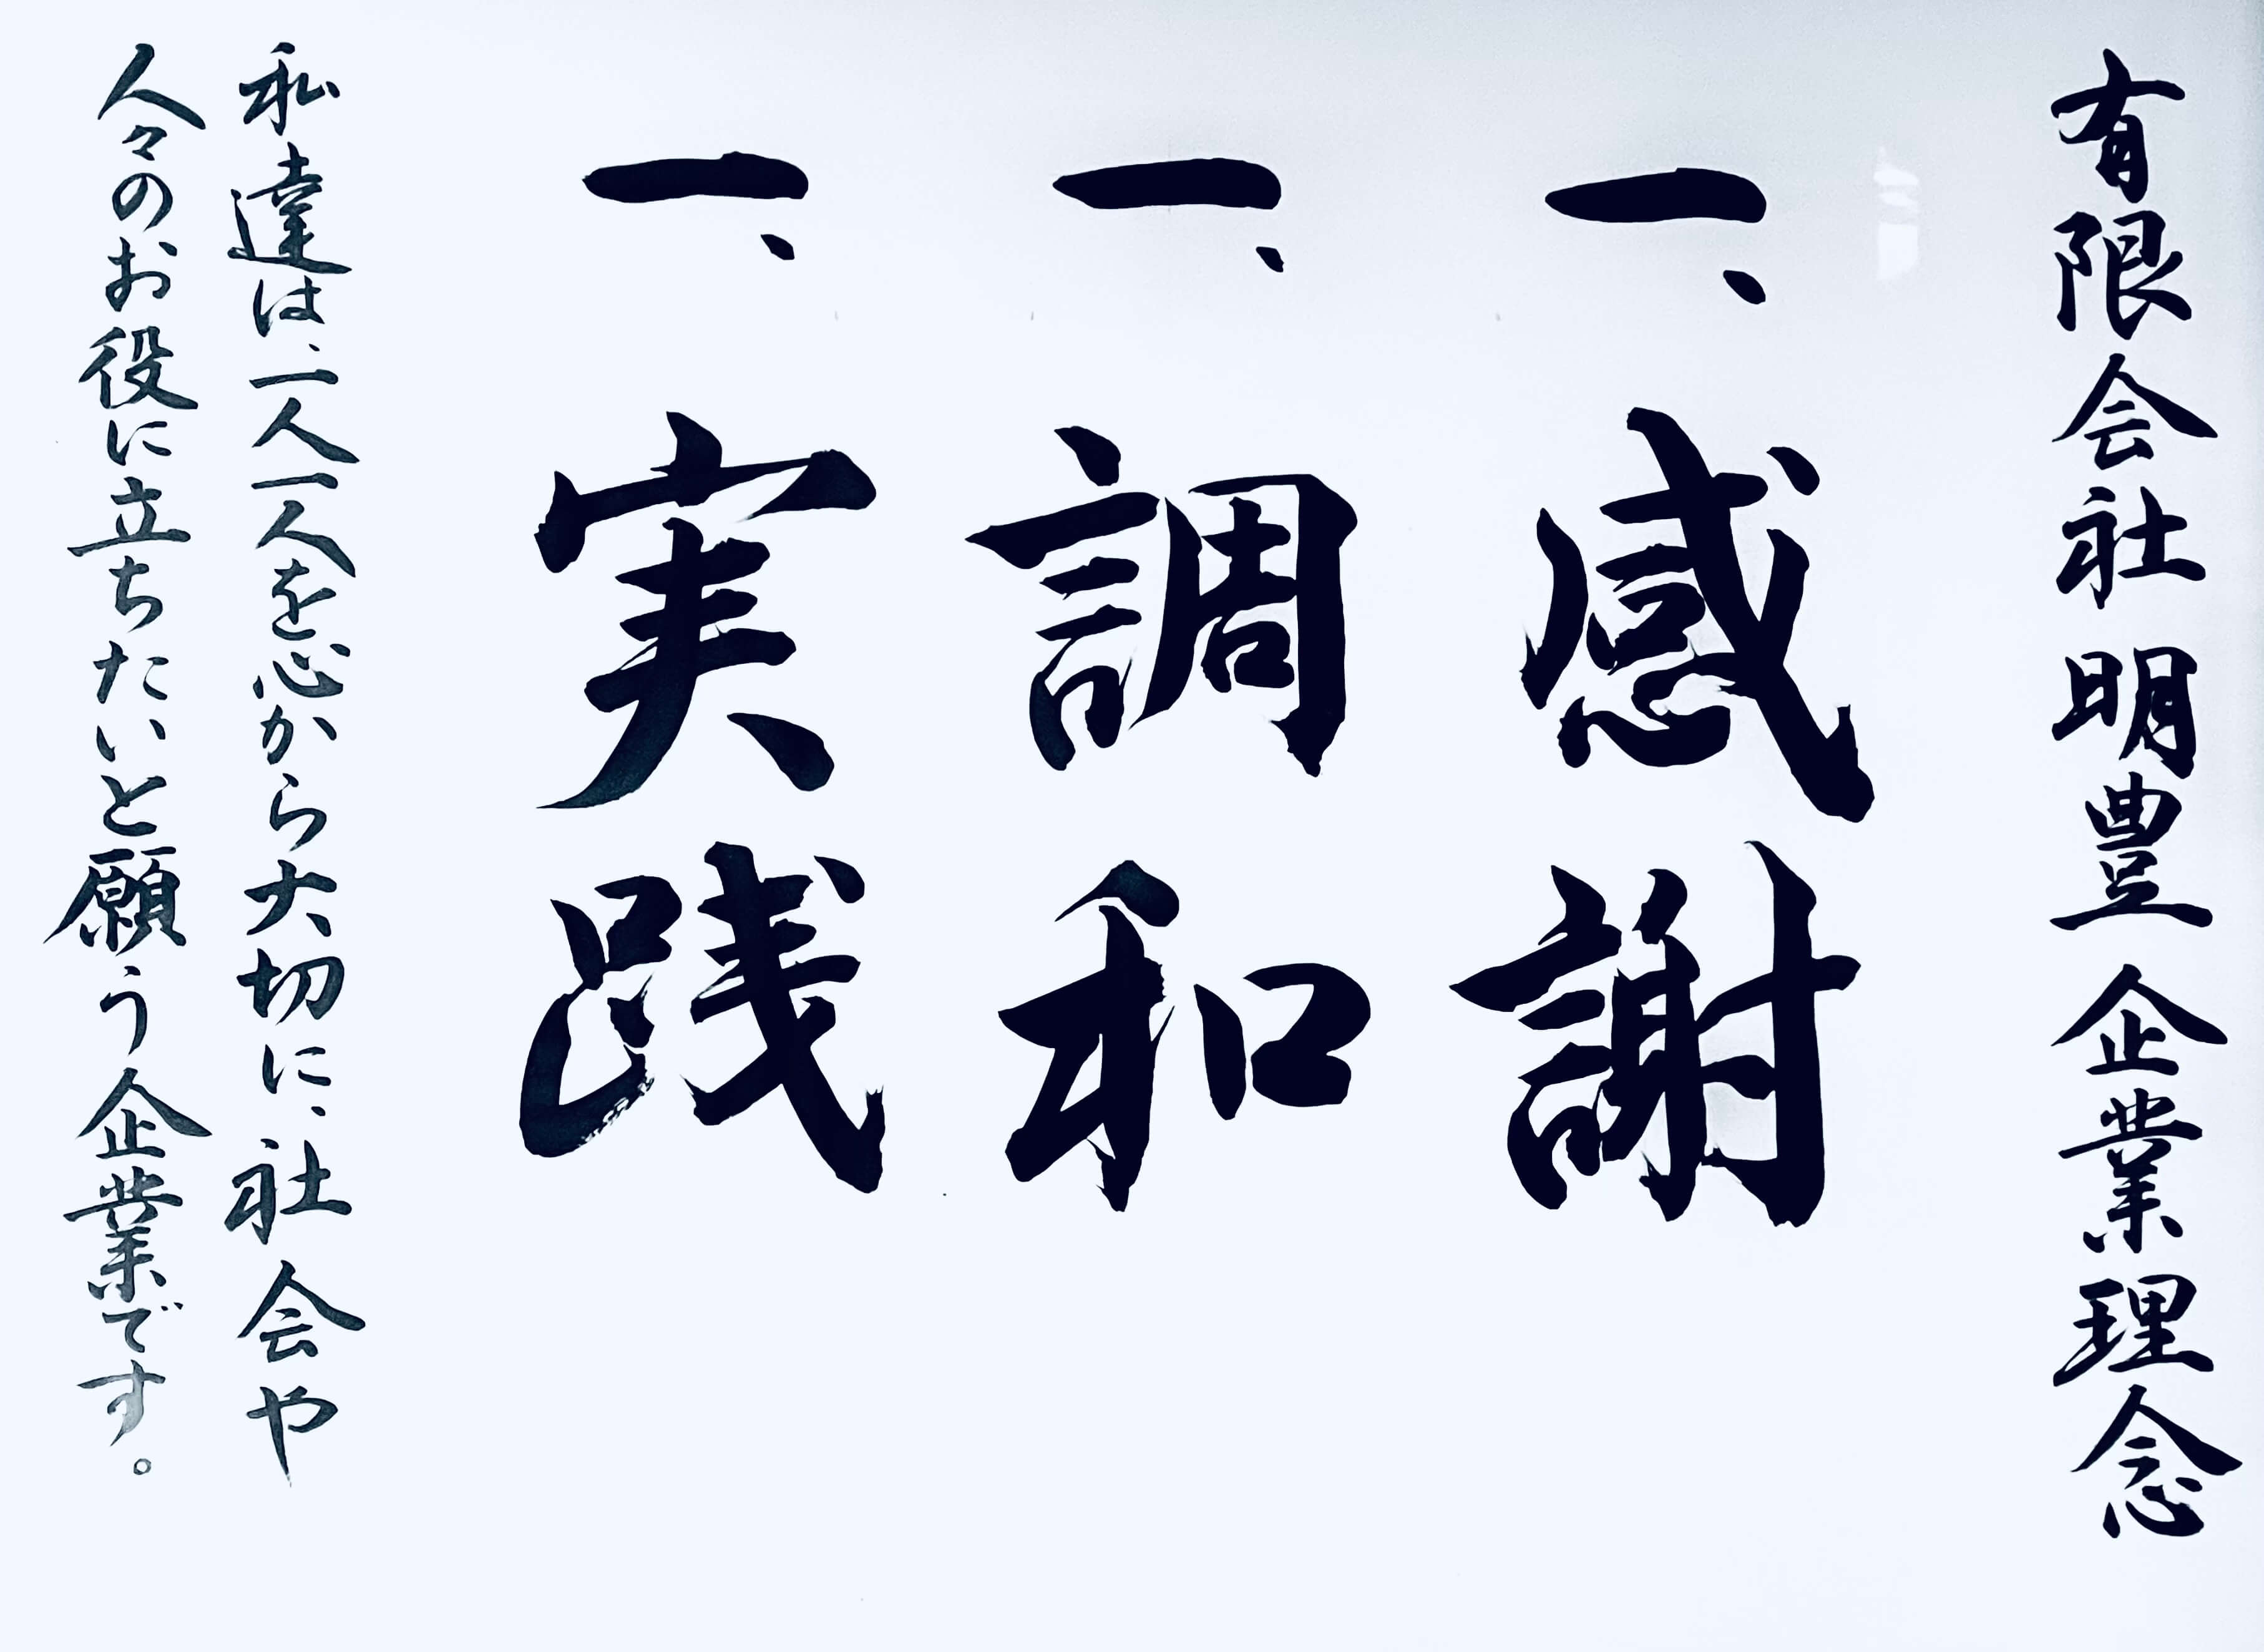 有限会社 明豊 企業理念
一、感謝
一、調和
一、実践
私達は、一人一人を心から大切に、社会や
人々のお役に立ちたいと願う企業です。